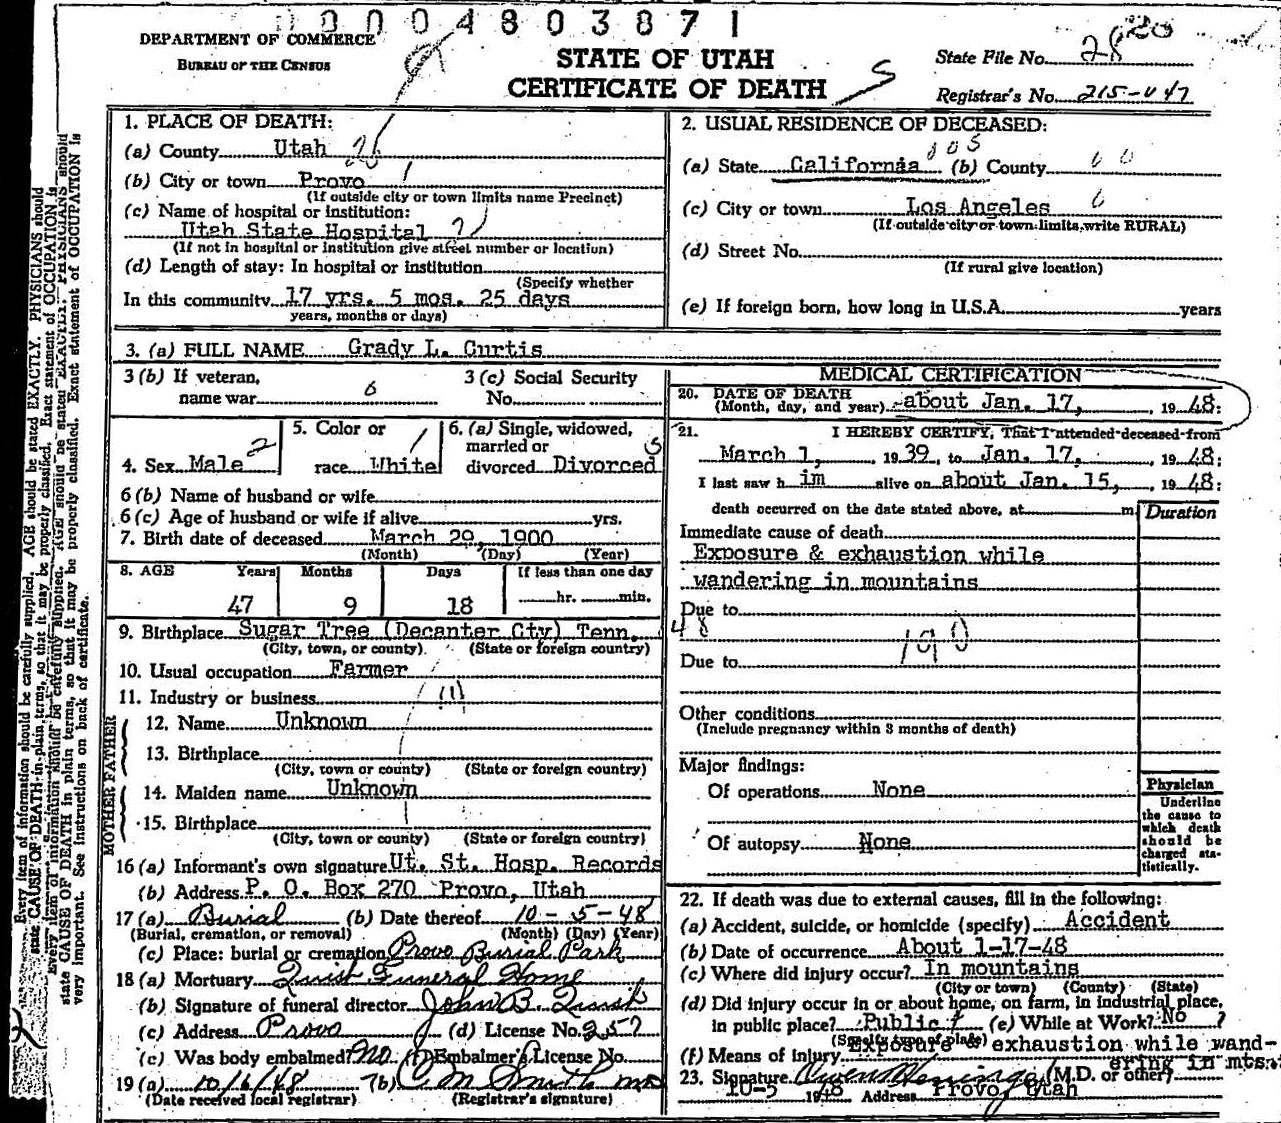 0004803871
DEPARTMENT OF COMMERCE
BUREAU OF THE CENSUS
STATE OF UTAH
CERTIFICATE OF DEATH
State File No. 28
20
Registrar's No. 215-047
1. PLACE OF DEATH:
(a) County Utah
(b) City or town Provo
(If outside city or town limits name Precinct)
(c) Name of hospital or institution:
Utah State Hospital
(If not in hospital or institution give street number or location)
(d) Length of stay: In hospital or institution
(Specify whether
In this community 17 yrs. 5 mos. 25 days
years, months or days)
2. USUAL RESIDENCE OF DECEASED:
(a) State California (b) County
(c) City or town Los Angeles
(If outside city or town limits, write RURAL)
(d) Street No.
(If rural give location)
(e) If foreign born, how long in U.S.A. years
3. (a) FULL NAME Grady L. Curtis
3 (b) If veteran, name war
3 (c) Social Security No.
4. Sex Male
5. Color or race White
6. (a) Single, widowed, married or divorced Divorced
6 (b) Name of husband or wife
6 (c) Age of husband or wife if alive yrs.
7. Birth date of deceased March 29, 1900
(Month) (Day) (Year)
8. AGE Years Months Days If less than one day
47 9 18 hr. min.
9. Birthplace Sugar Tree (Decanter Cty) Tenn.
(City, town, or county) (State or foreign country)
10. Usual occupation Farmer
11. Industry or business
FATHER
12. Name Unknown
13. Birthplace
(City, town or county) (State or foreign country)
MOTHER
14. Maiden name Unknown
15. Birthplace
(City, town or county) (State or foreign country)
16 (a) Informant's own signature Ut. St. Hosp. Records
(b) Address P. O. Box 270 Provo, Utah
17 (a) Burial (b) Date thereof 10-5-48
(Burial, cremation, or removal) (Month) (Day) (Year)
(c) Place: burial or cremation Provo Burial Park
18 (a) Mortuary Funeral Home
(b) Signature of funeral director John B.
(c) Address Provo (d) License No. 257
(e) Was body embalmed? No. (f) Embalmer's License No.
19 (a) 10/6/48 (b) C M Smith MD
(Date received local registrar) (Registrar's signature)
MEDICAL CERTIFICATION
20. DATE OF DEATH
(Month, day, and year) about Jan. 17, 1948:
21. I HEREBY CERTIFY, That I attended deceased from
March 1, 1939, to Jan. 17, 1948:
I last saw him alive on about Jan. 15, 1948:
death occurred on the date stated above, at m.
Duration
Immediate cause of death
Exposure & exhaustion while
wandering in mountains
Due to
Due to
Other conditions
(Include pregnancy within 3 months of death)
Major findings:
Of operations None
Of autopsy None
Physician
Underline
the cause to
which death
should be
charged sta-
tistically.
22. If death was due to external causes, fill in the following:
(a) Accident, suicide, or homicide (specify) Accident
(b) Date of occurrence About 1-17-48
(c) Where did injury occur? In mountains
(City or town) (County) (State)
(d) Did injury occur in or about home, on farm, in industrial place,
in public place? Public (e) While at Work? No
(Specify type of place)
(f) Means of injury Exposure exhaustion while wand-
ering in mts.
23. Signature (M.D. or other)
10-5 1948 Address Provo, Utah